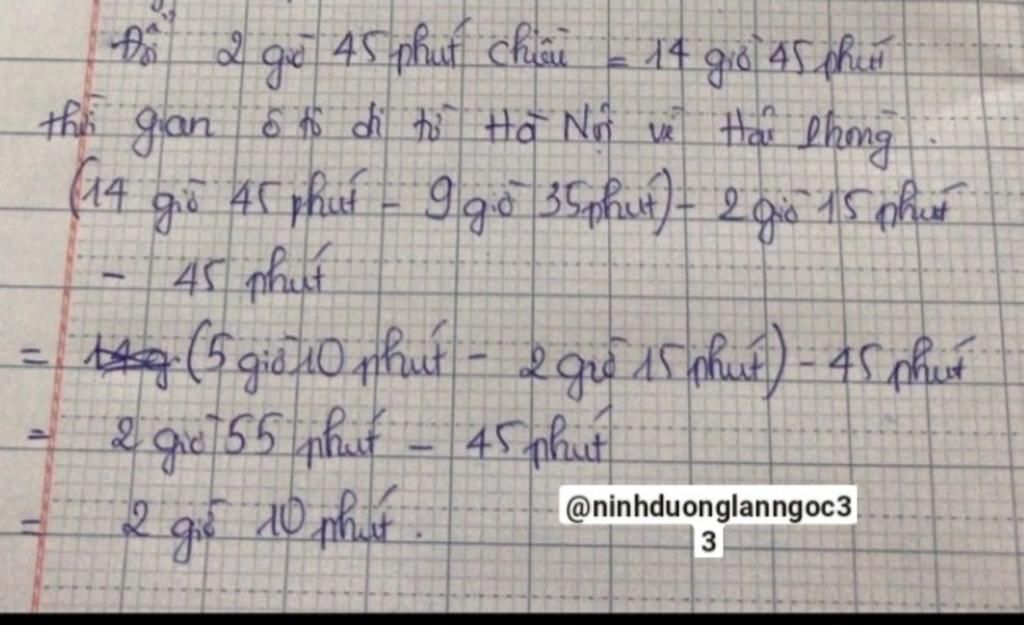 Đổi 2 giờ 45 phút chiều = 14 giờ 45 phút
thời gian ô tô đi từ Hà Nội về Hải Phòng.
(14 giờ 45 phút - 9 giờ 35 phút) - 2 giờ 15 phút
- 45 phút
= (5 giờ 10 phút - 2 giờ 15 phút) - 45 phút
= 2 giờ 55 phút - 45 phút
= 2 giờ 10 phút.
@ninhduonglanngoc3
3